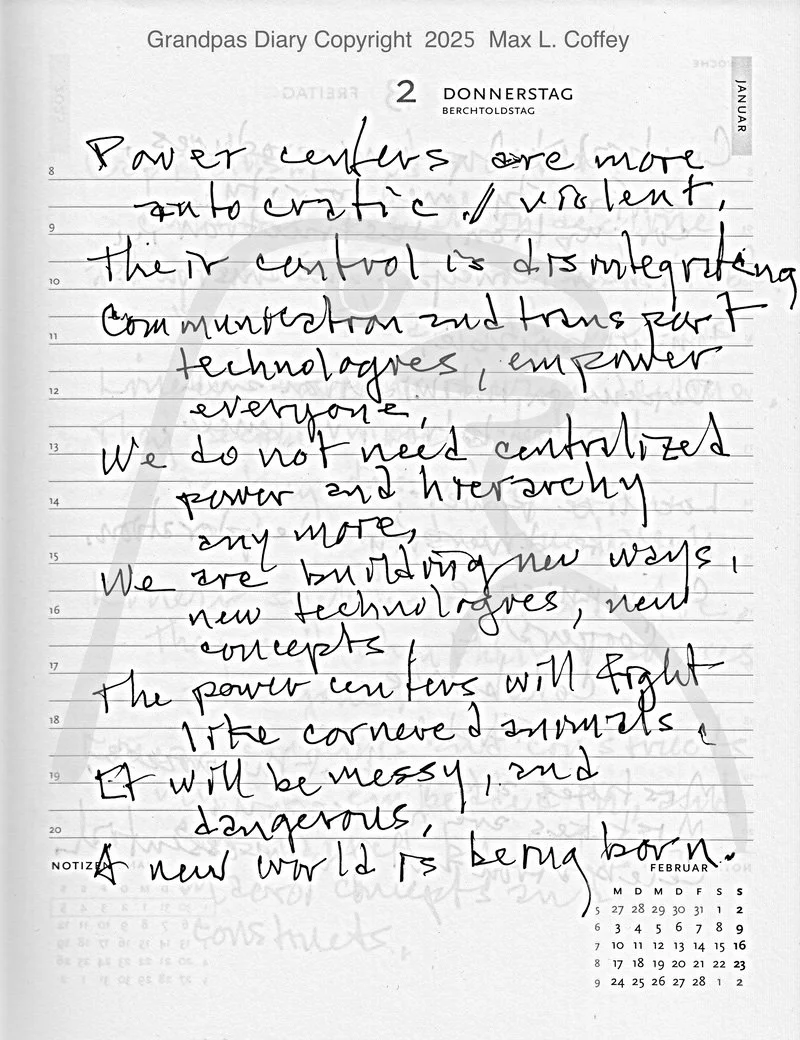 Grandpas Diary Copyright 2025 Max L. Coffey
2 DONNERSTAG
BERCHTOLDSTAG
JANUAR
Power centers are more
8
autocratic // violent.
9
Their control is disintegrating
10
Communication and transport
11
technologies, empower
12
everyone,
13
We do not need centralized
power and hierarchy
14
any more,
15
We are building new ways,
new technologies, new
16
concepts,
17
The power centers will fight
18
like cornered animals,
19
It will be messy, and
dangerous,
20
A new world is being born.
NOTIZEN
FEBRUAR
M D M D F S S
5 27 28 29 30 31 1 2
6 3 4 5 6 7 8 9
7 10 11 12 13 14 15 16
8 17 18 19 20 21 22 23
9 24 25 26 27 28 1 2
constructs.